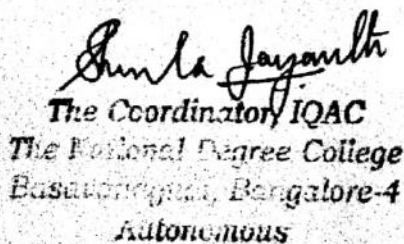 Jayanth
The Coordinator, IQAC
The National Degree College
Basavanagudi, Bangalore-4
Autonomous